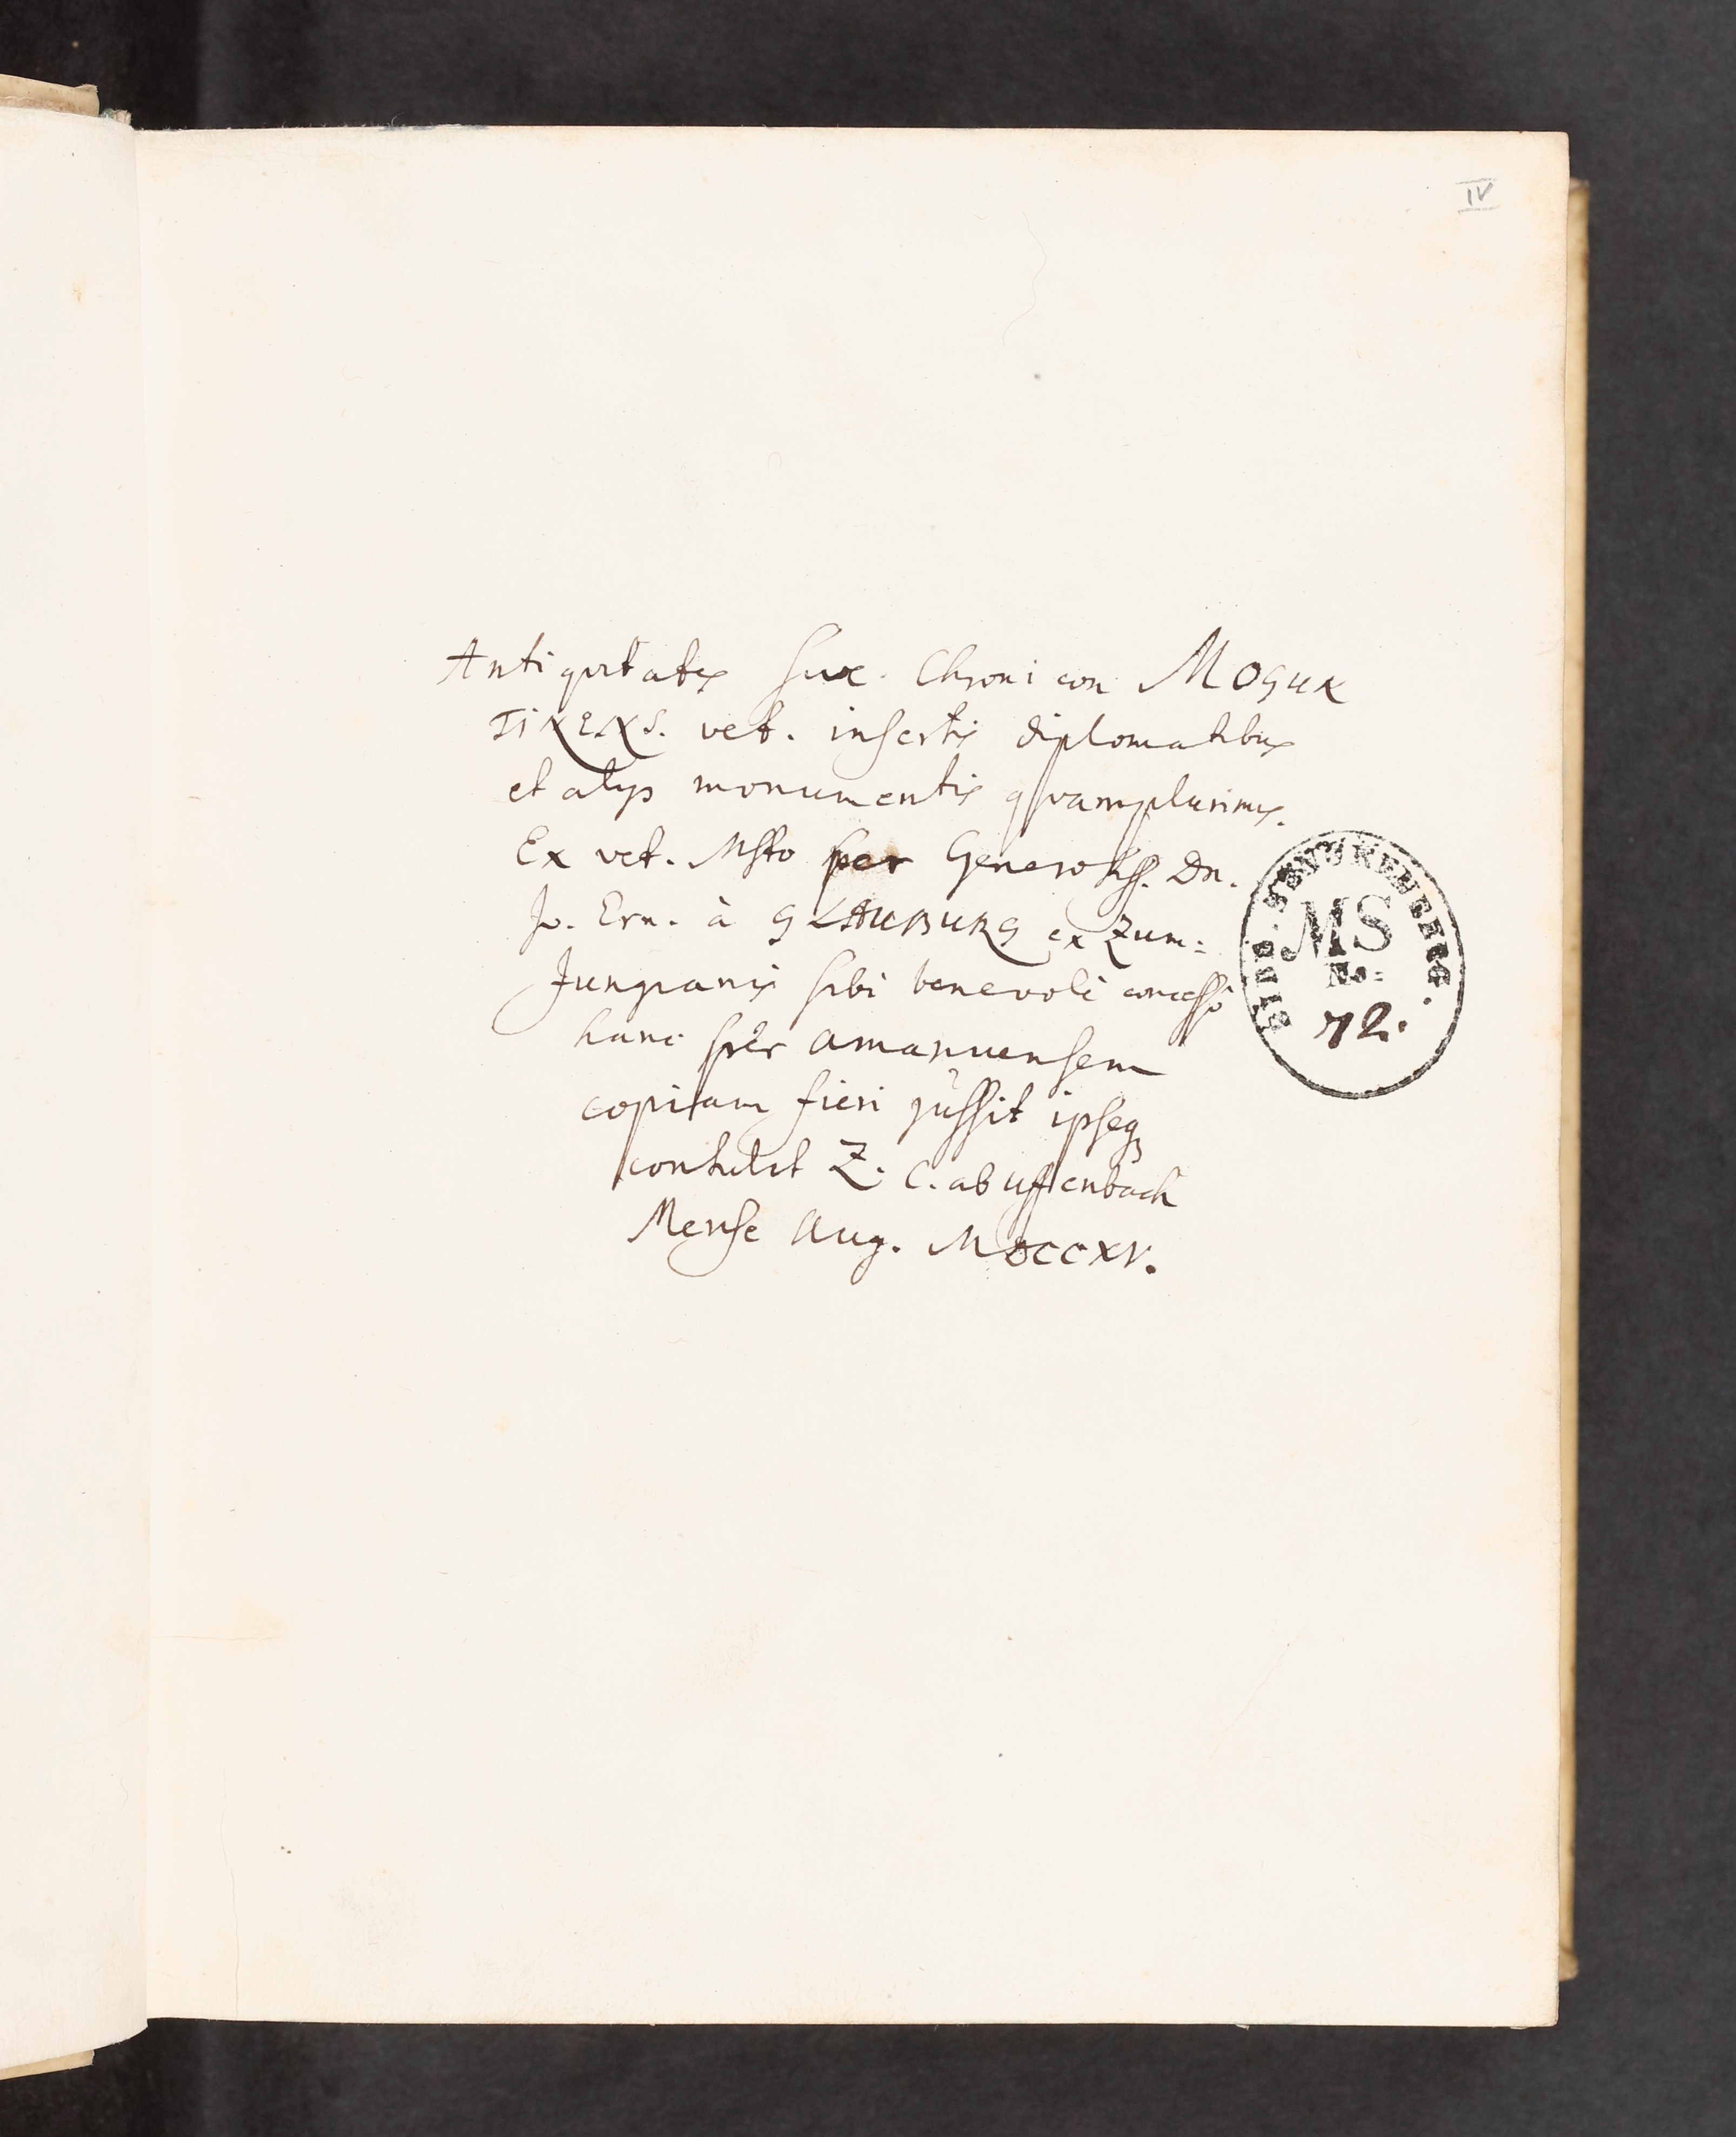 IV
Antiqvitates sive Chronicon MOGUN
TINENS. vet. insertis diplomatibus
et alijs monumentis qvamplurimis.
Ex vet. Msto per Generosiss. Dn.
Jo. Ern. à GLAUBURG ex Zum=
Jungianis sibi benevolè concesso
hanc per amanuensem
copiam fieri jussit ipseq
contulit Z. C. ab Uffenbach
Mense Aug. MDCCXV.
BIBL. SENCKENBERG.
MS
No.
72.